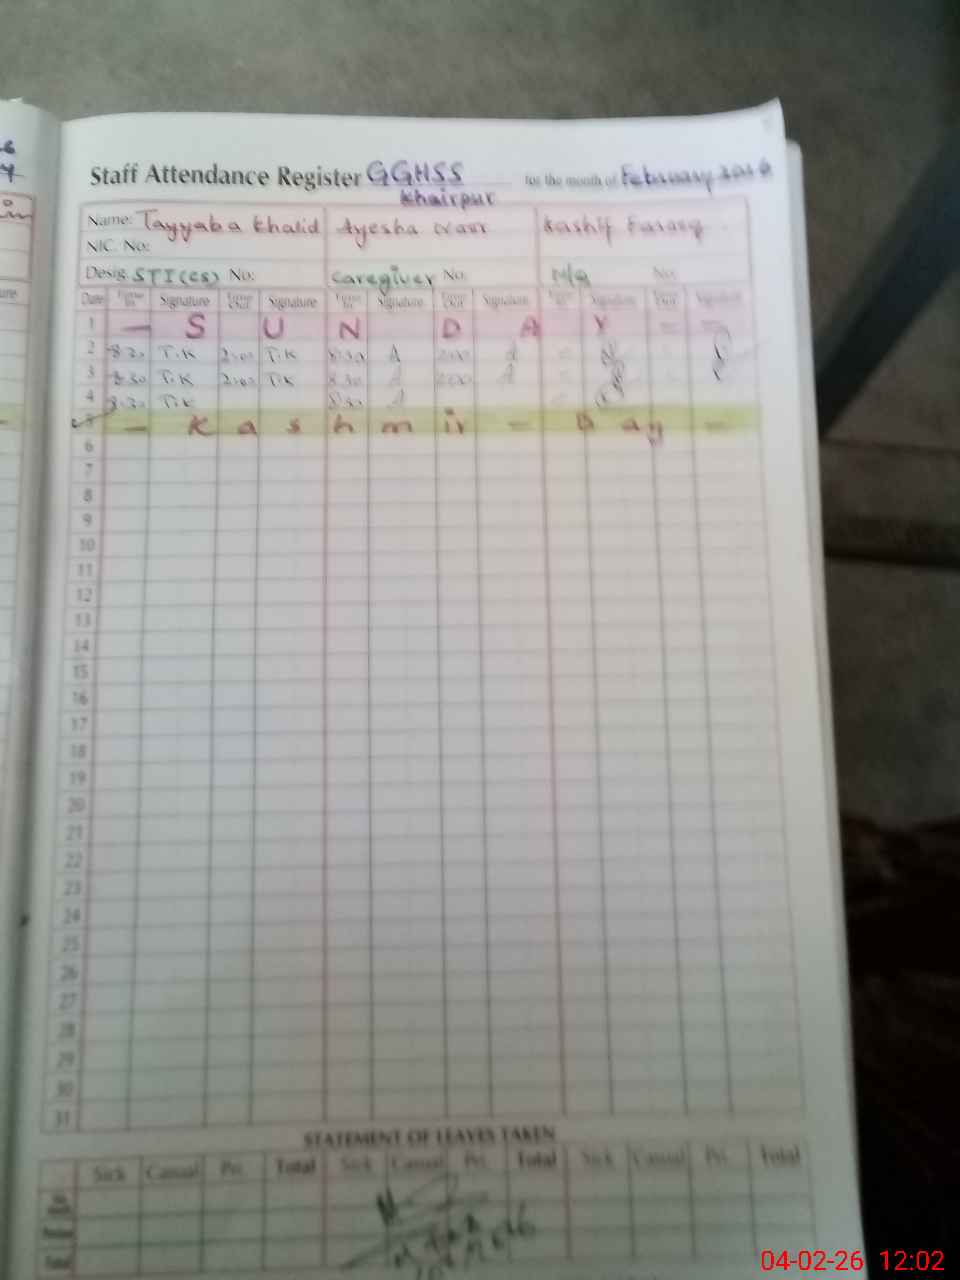 Staff Attendance Register GGHSS for the month of February 2026
Khairpur
Name: Tayyaba Khalid Ayesha Noor Kashif Farooq
NIC. No:
Desig. STI(CS) No: Caregiver No: N/Q No:
Date Time In Signature Time Out Signature Time In Signature Time Out Signature Time In Signature Time Out Signature
1 — S U N D A Y — —
2 8:30 T.K 2:00 T.K 8:30 A 2:00 A
3 8:30 T.K 2:00 T.K 8:30 A 2:00 A
4 8:30 T.K 8:30 A
5 — K a s h m i r — D a y —
6
7
8
9
10
11
12
13
14
15
16
17
18
19
20
21
22
23
24
25
26
27
28
29
30
31
STATEMENT OF LEAVES TAKEN
Sick Casual Pri. Total Sick Casual Pri. Total Sick Casual Pri. Total
04-02-26 12:02